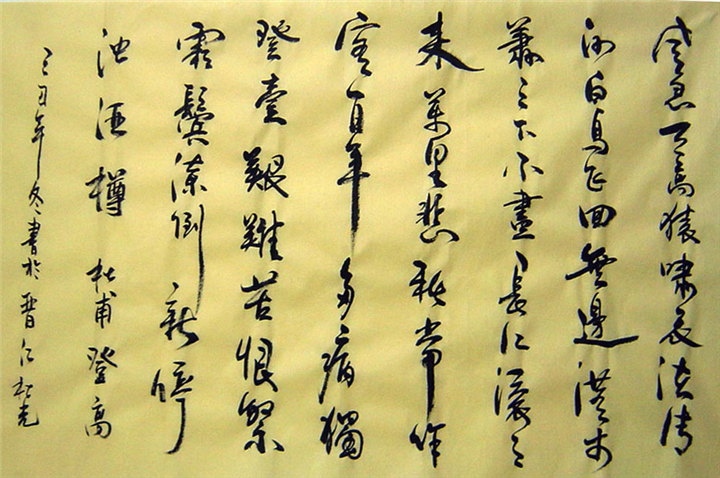 風急天高猿嘯哀渚清
沙白鳥飛回無邊落木
蕭々下不盡長江滾々
来萬里悲秋常作
客百年多病獨
登臺艱難苦恨繁
霜鬢潦倒新停
浊酒樽 杜甫登高
己丑年冬書於晋江